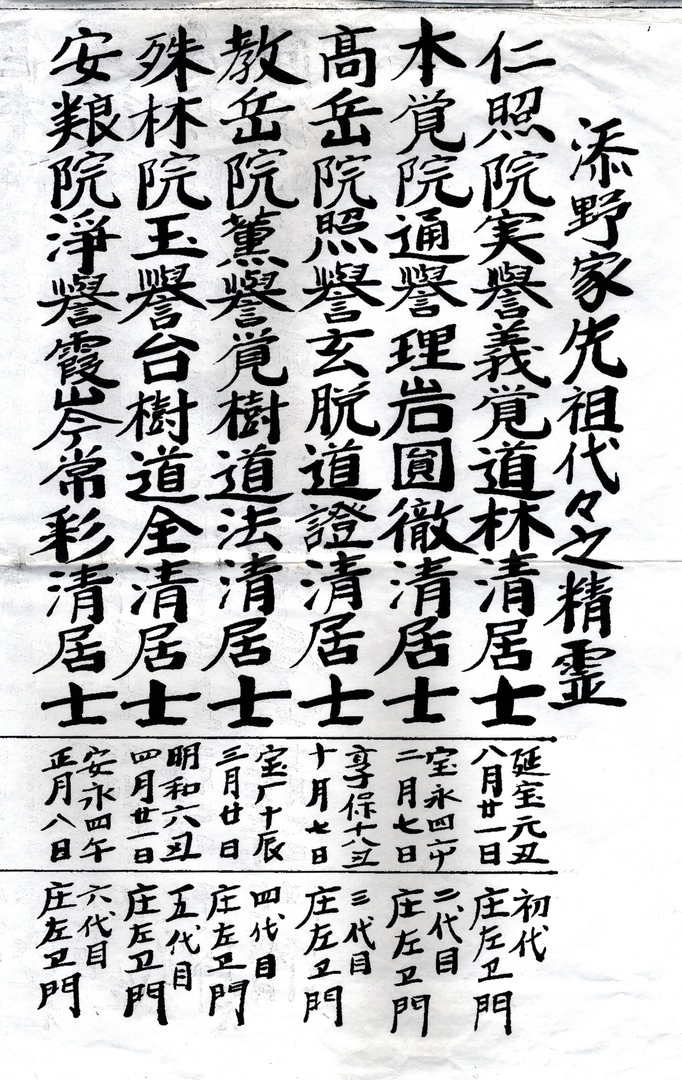 添野家先祖代々之精霊
仁照院実譽義覚道林清居士
延宝元丑
八月廿一日
初代
庄左卫門
本覚院通譽理岩圓徹清居士
宝永四
二月七日
二代目
庄左卫門
髙岳院照譽玄脱道證清居士
享保十八丑
十月七日
三代目
庄左卫門
教岳院薫譽覚樹道法清居士
宝厂十辰
三月廿日
四代目
庄左卫門
殊林院玉譽台樹道全清居士
明和六丑
四月廿一日
五代目
庄左卫門
安粮院淨譽霞岑常彩清居士
安永四午
正月八日
六代目
庄左卫門